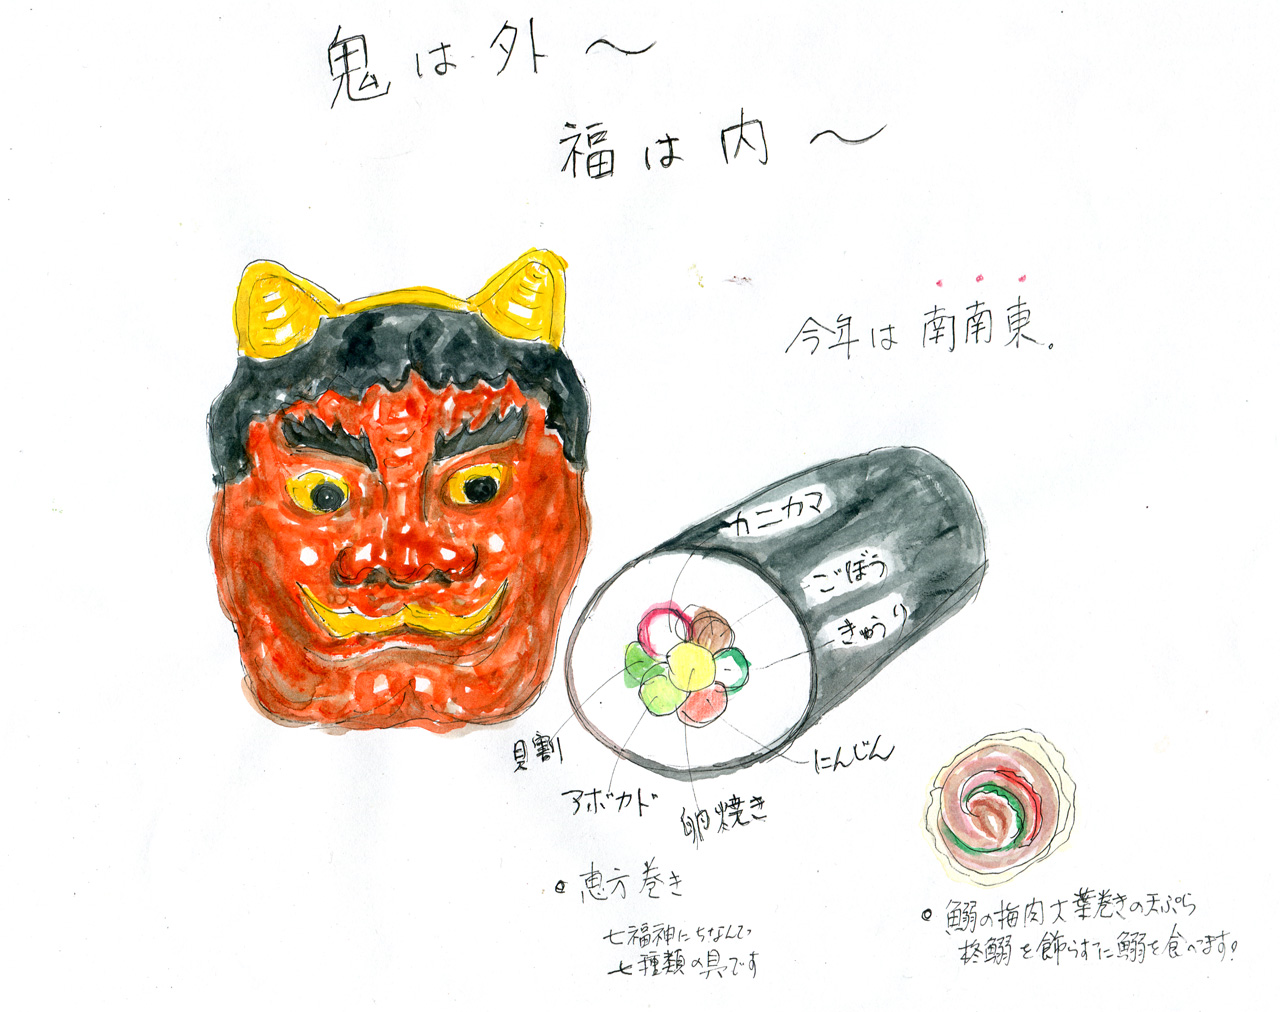 鬼は外〜
福は内〜
今年は南南東。
カニカマ
ごぼう
きゅうり
にんじん
貝割
アボカド
卵焼き
恵方巻き
七福神にちなんで
七種類の具です
鰯の梅肉大葉巻きの天ぷら
柊鰯を飾らずに鰯を食べてます!